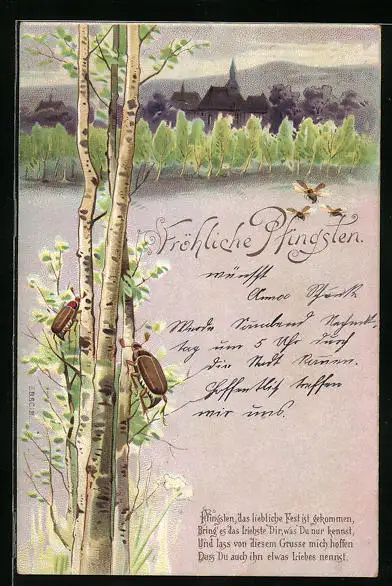 Fröhliche Pfingsten.
wünscht
Werde Sonnabend Nachmit-
tag um 5 Uhr durch
die Stadt kommen.
Hoffentlich treffen
wir uns.
Pfingsten, das liebliche Fest ist gekommen,
Bring' es das liebste Dir, was Du nur kennst,
Und lass von diesem Grusse mich hoffen
Dass Du auch ihn etwas Liebes nennst.